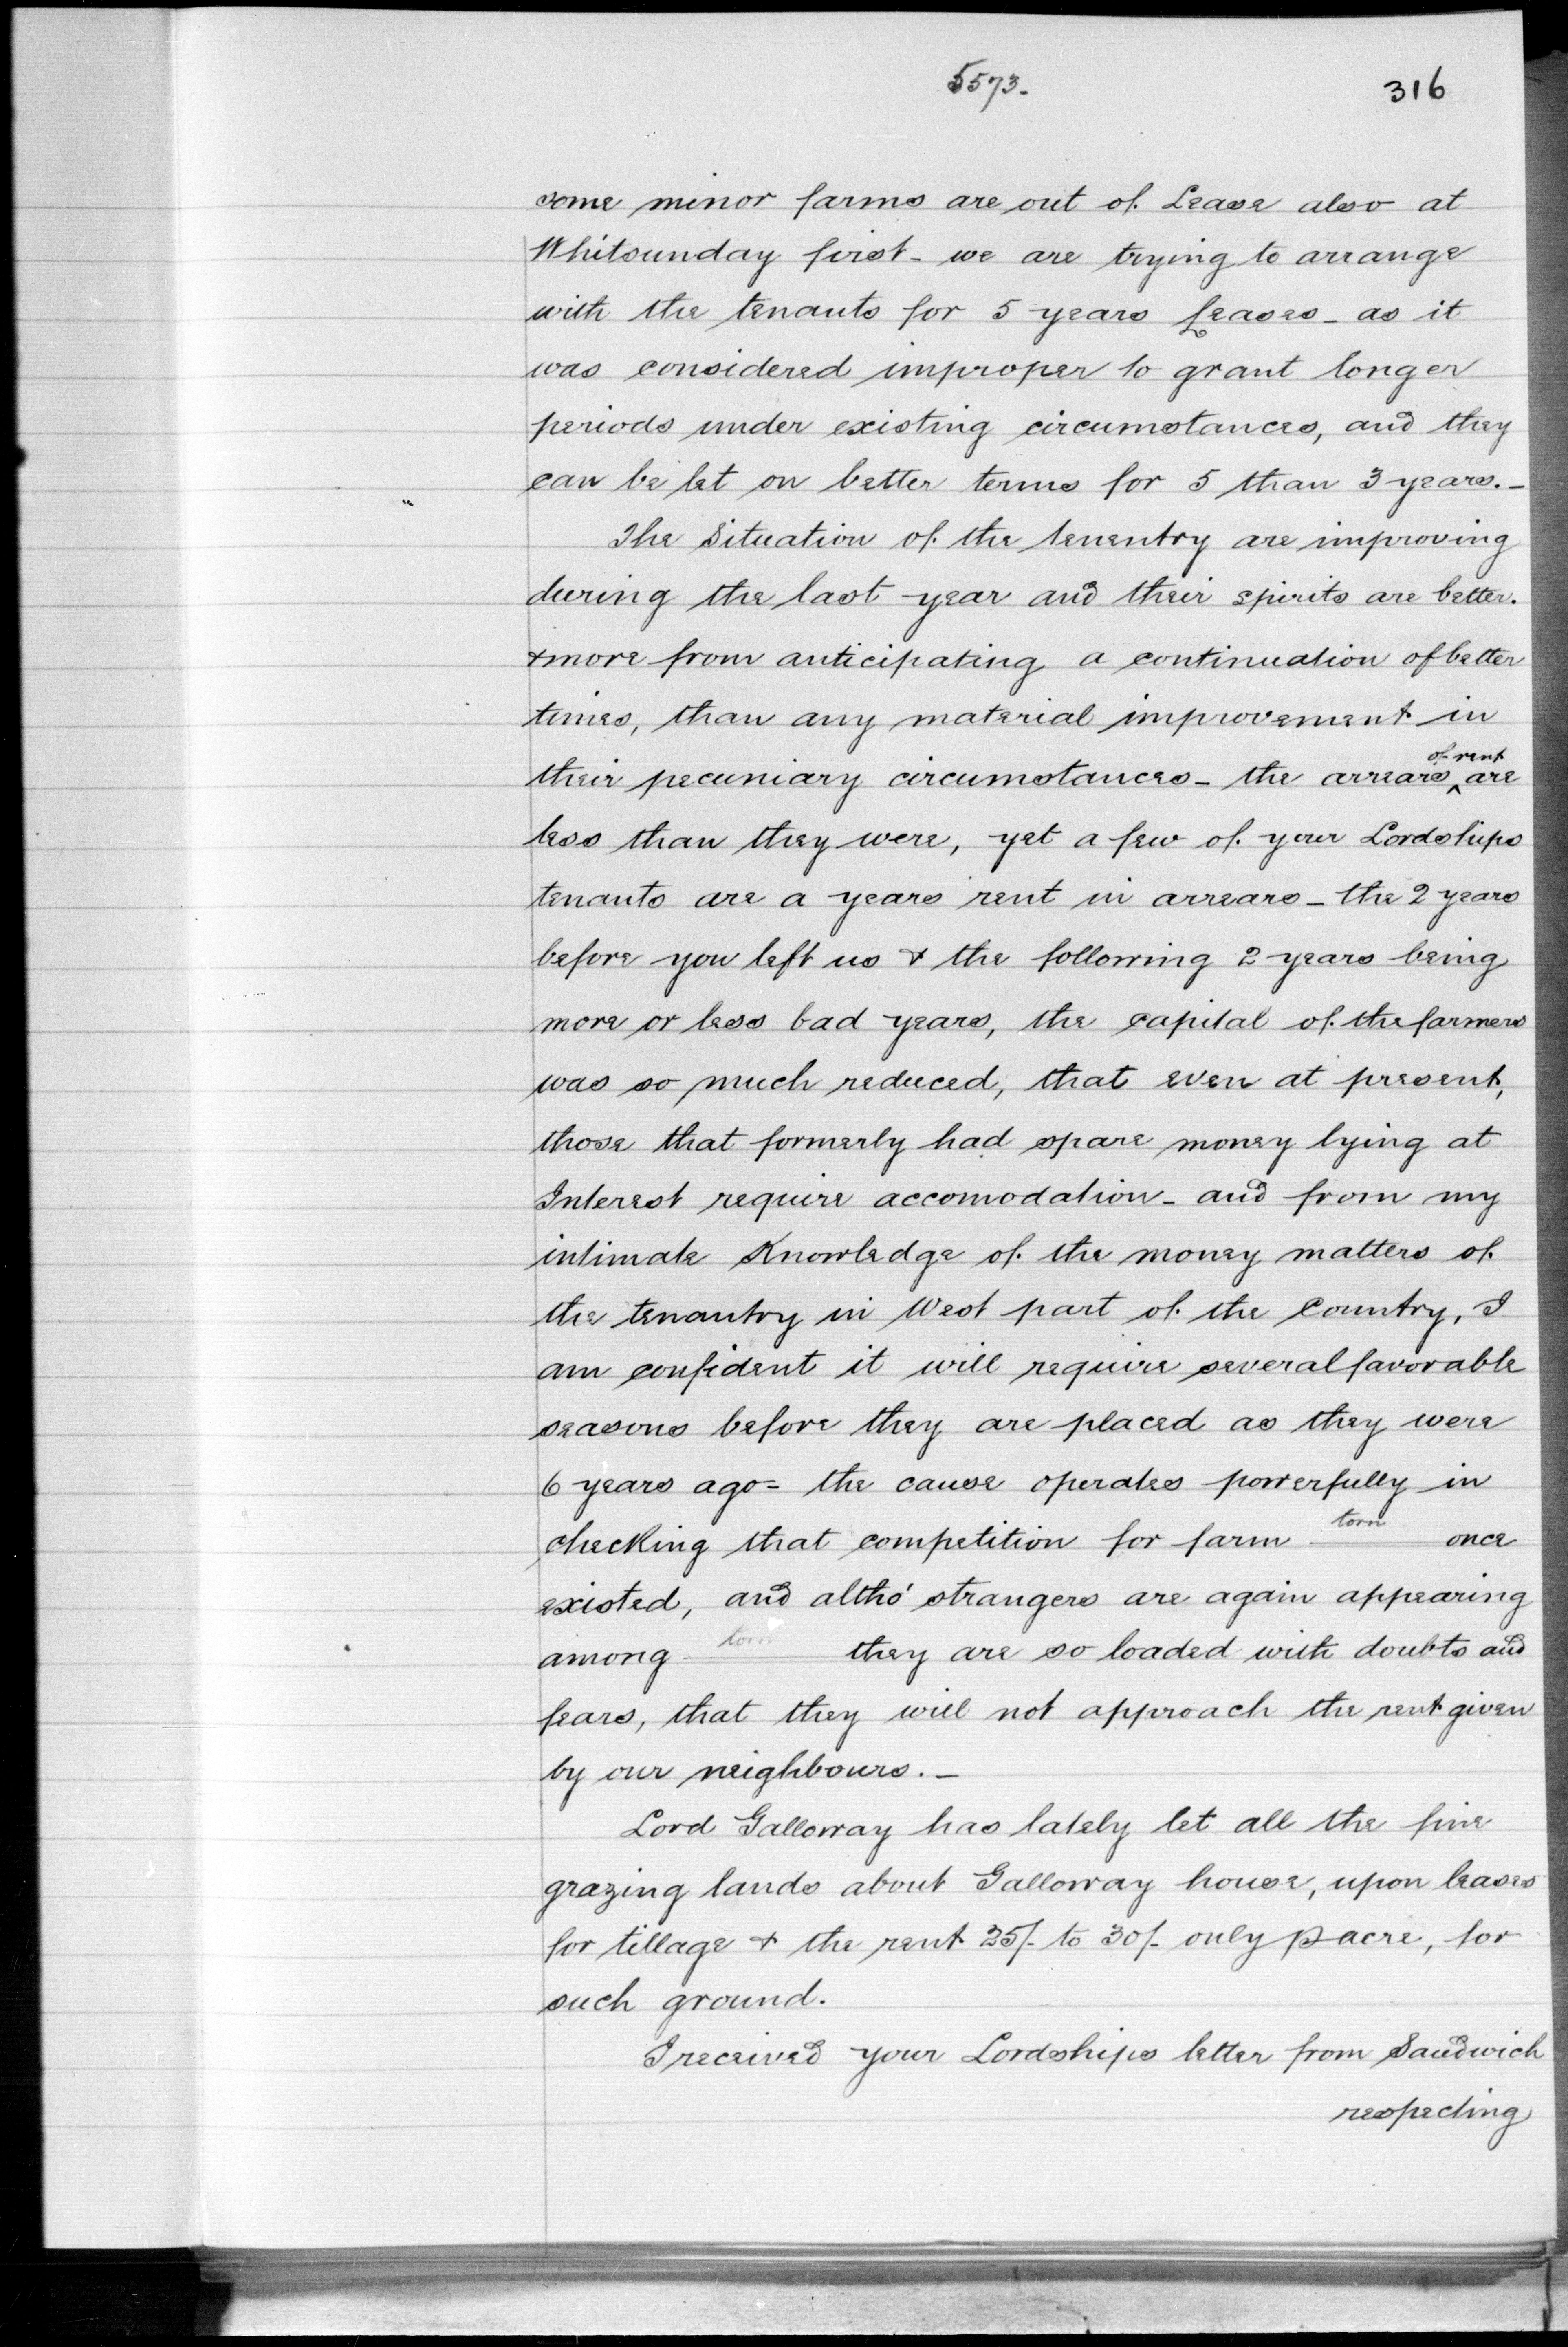 5573.
316
some minor farms are out of Lease also at
Whitsunday first - we are trying to arrange
with the tenants for 5 years Leases - as it
was considered improper to grant longer
periods under existing circumstances, and they
can be let on better terms for 5 than 3 years. -
The Situation of the tenentry are improving
during the last year and their spirits are better.
& more from anticipating a continuation of better
times, than any material improvement in
their pecuniary circumstances - the arrears ^of rent are
less than they were, yet a few of your Lordships
tenants are a years rent in arrears - the 2 years
before you left us & the following 2 years being
more or less bad years, the capital of the farmers
was so much reduced, that even at present,
those that formerly had spare money lying at
Interest require accomodation - and from my
intimate Knowledge of the money matters of
the tenantry in West part of the Country, I
am confident it will require several favorable
seasons before they are placed as they were
6 years ago = the cause operates powerfully in
checking that competition for farm torn once
existed, and altho' strangers are again appearing
among torn they are so loaded with doubts and
fears, that they will not approach the rent given
by our neighbours. -
Lord Galloway has lately let all the fine
grazing lands about Galloway house, upon leases
for tillage & the rent 25/- to 30/- only p acre, for
such ground.
I received your Lordships letter from Sandwich
respecting